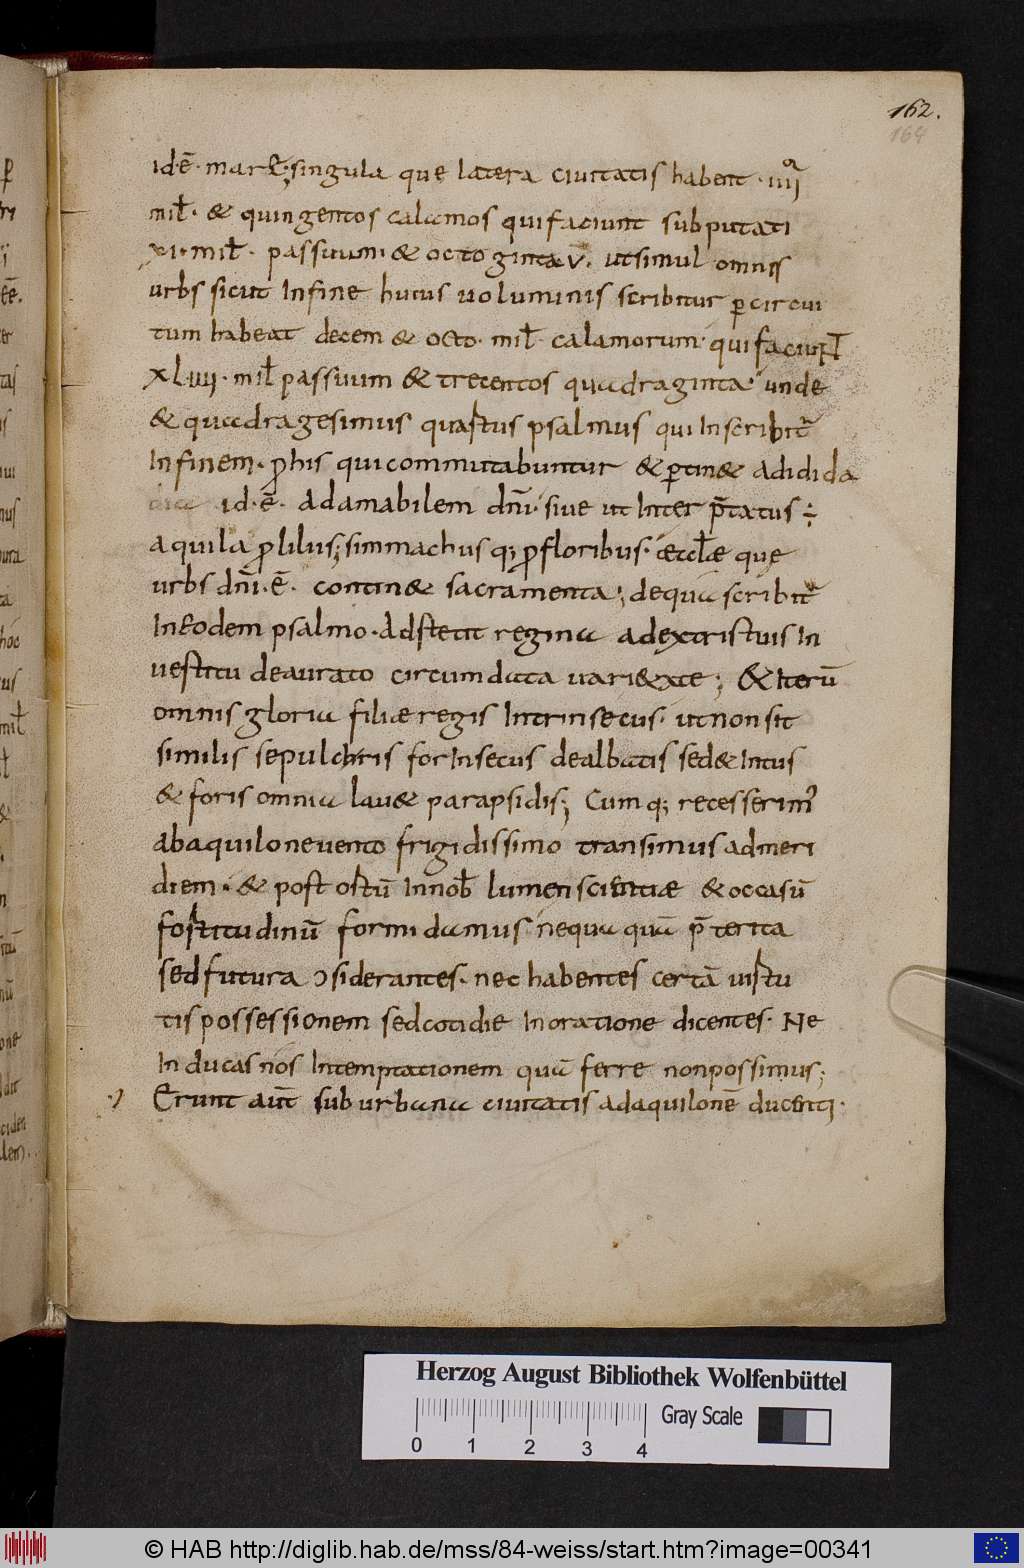 162.
164
id·ē· mare; singula que latera ciuitatis habent · iiii
mił· & quingentos calamos qui faciunt subputati
xi· mił· passuum· & octoginta v̄. ut simul omnis
urbs sicut In fine huius uoluminis scribitur p circui
tum habeat decem & octo· mił· calamorum· qui faciunt
xLuii· mił passuum & trecentos quadraginta· unde
& quadragesimus quartus psalmus qui Inscribit
Infinem· p his qui commutabuntur & ptin& adidida
id·ē· ad amabilem dnī· siue ut Inter p̄tatus ÷
aquila p lilus; simmachus q; p floribus· æccłæ que
urbs dnī·ē· contin& sacramenta; de qua scribit
In Eodem psalmo· Adstetit regina a dextris tuis In
uestitu deaurato circumdata uari&xte; & Iterū
omnis gloria filiæ regis Intrinsecus· ut non sit
similis sepulchris forInsecus dealbatis sed & Intus
& foris omnia lau& parapsidis; Cum q; recesserim'
ab aquilone vento frigidissimo transimus ad meri
diem· & post ortū In nob̄ lumen scientiæ & occasū
fortitudinū formidamus nequaquā p̄terita
sed futura ɔsiderantes· nec habentes certā uirtu
tis possessionem sed cotidie In oratione dicentes· Ne
Inducas nos Intemptationem quā ferre non possimus;
Erunt aūt suburbana ciuitatis ad aquilonē ducenti·
Herzog August Bibliothek Wolfenbüttel
Gray Scale
0 1 2 3 4
© HAB http://diglib.hab.de/mss/84-weiss/start.htm?image=00341